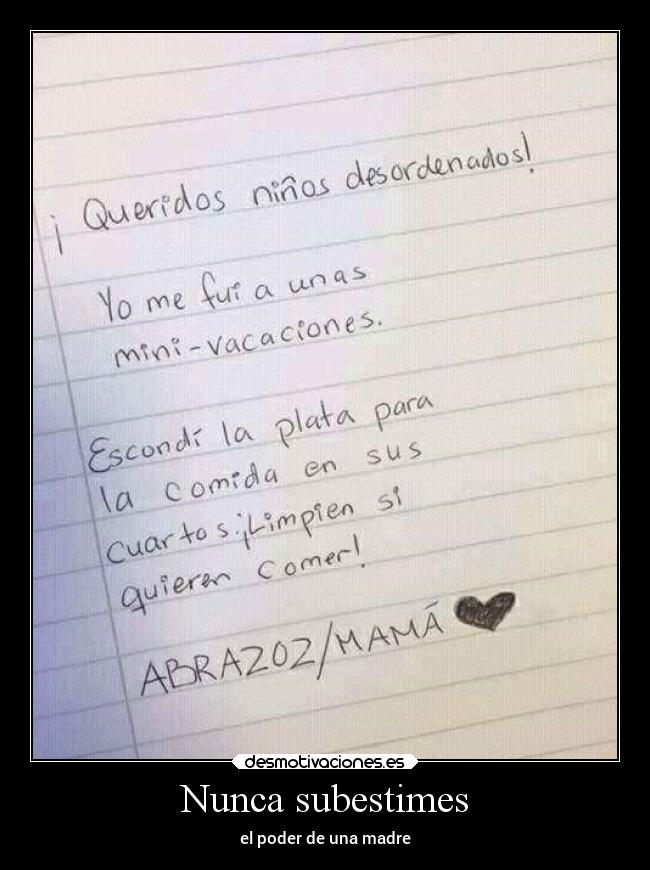 ¡Queridos niños desordenados!
Yo me fui a unas
mini-vacaciones.
Escondí la plata para
la comida en sus
cuartos.¡Limpien si
quieren comer!
ABRAZOZ/MAMÁ
desmotivaciones.es
Nunca subestimes
el poder de una madre